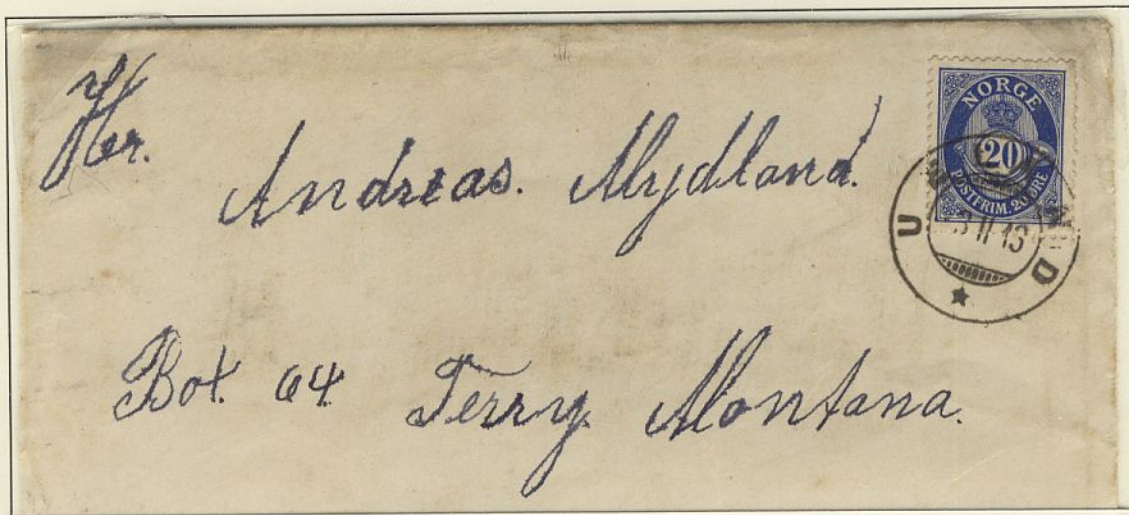 Hr.
Andreas. Mydland.
Box 64 Terry. Montana.
NORGE
20
POSTFRIM. 20 ØRE